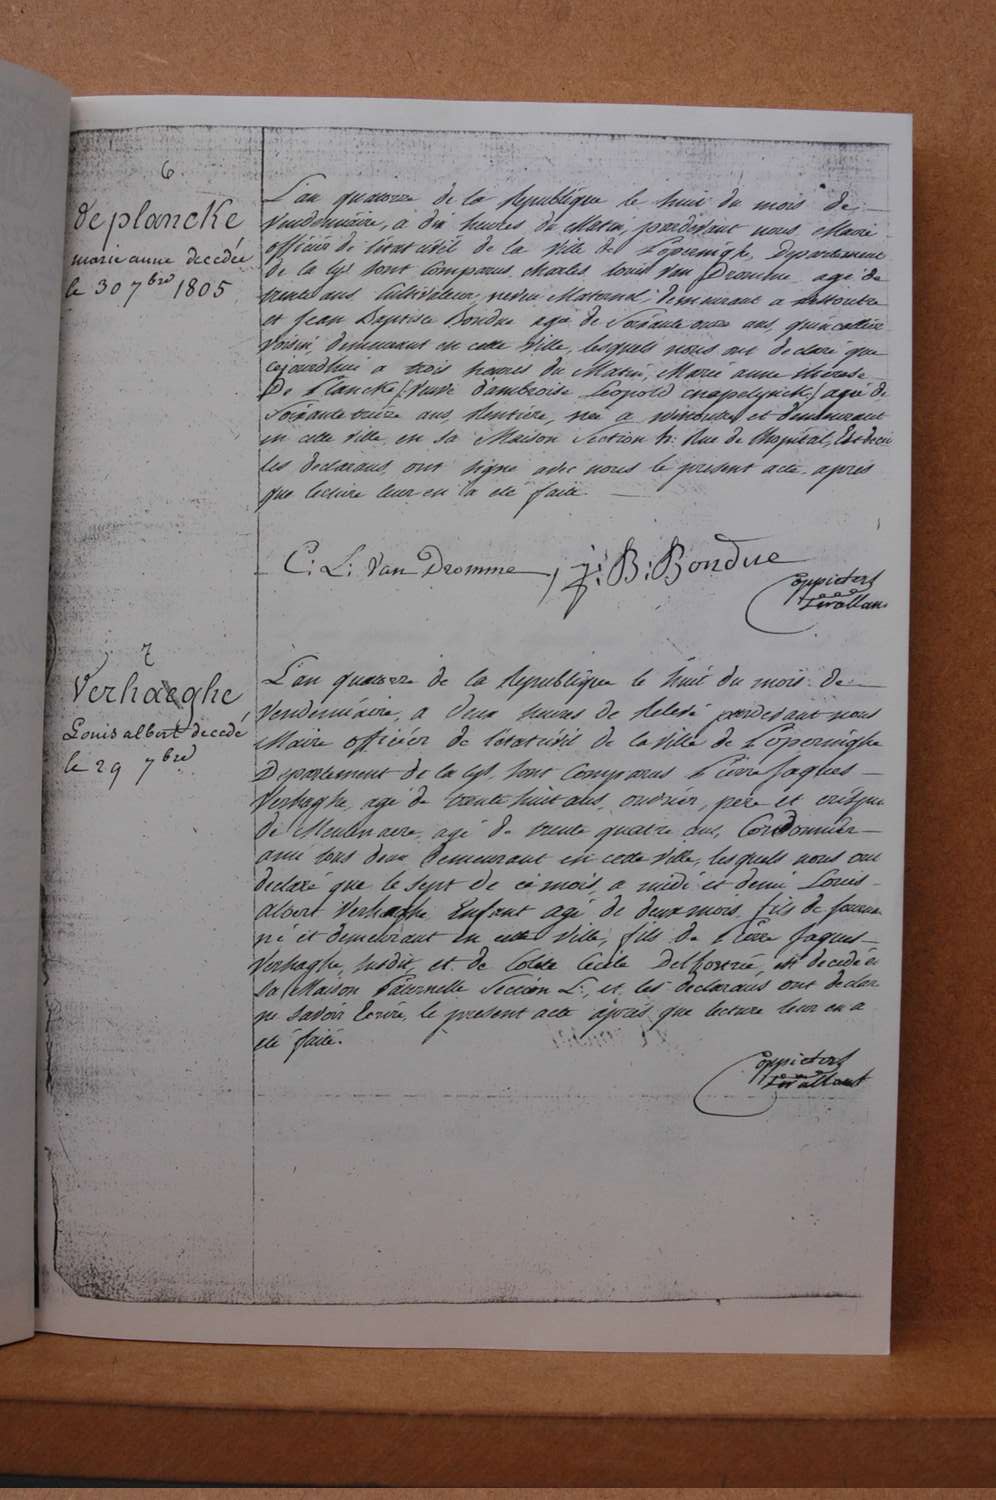 6.
deplancke
marie anne decedée
le 30 7bre 1805
L'an quatorze de la Republique le huit du mois de
Vendemiaire, a dix heures du Matin, pardevant nous Maire
officier de l'etat civil de la Ville de Poperinghe, Departement
de la Lys sont Comparus Charles Louis Van Dromme agé de
trente ans Cultivateur, neveu Maternel, demeurant a
et Jean Baptiste Bondue agé de Soixante onze ans, quincaillier
Voisin, demeurant en cette Ville, lesquels nous ont declaré que
cejourdhui a trois heures du Matin, Marie anne therese
De Plancke (Veuve d'ambroise Leopold ) agée de
Soixante treize ans, Rentiere, née a et demeurant
en cette Ville en sa Maison Section h: Rue de l'hopital, Est decedée
les declarans ont signé avec nous le present acte après
que lecture leur en a eté faite.
C: L: Van Dromme, j: B: Bondue
7
Verhaeghe
Louis albert decedé
le 29 7bre
L'an quatorze de la Republique le huit du mois de
Vendemiaire, a deux heures de Relevé pardevant nous
Maire officier de l'etat civil de la Ville de Poperinghe
Departement de la Lys, sont Comparus Pierre Jaques
Verhaghe, agé de trente huit ans, ouvrier, pere et crispin
de Meulenaere, agé de trente quatre ans, Cordonnier
ami tous deux demeurant en cette Ville, lesquels nous ont
declaré que le sept de ce mois, a midi et demi Louis
Albert Verhaghe Enfant agé de deux mois, fils de
né et demeurant en cette Ville, fils de Pierre Jaques
Verhaghe, susdit, et de Colete Cecile Delfortrie, est decedé en
sa Maison Paternelle Section L:, et, les declarans ont declaré
ne savoir Ecrire, le present acte après que lecture leur en a
eté faite.